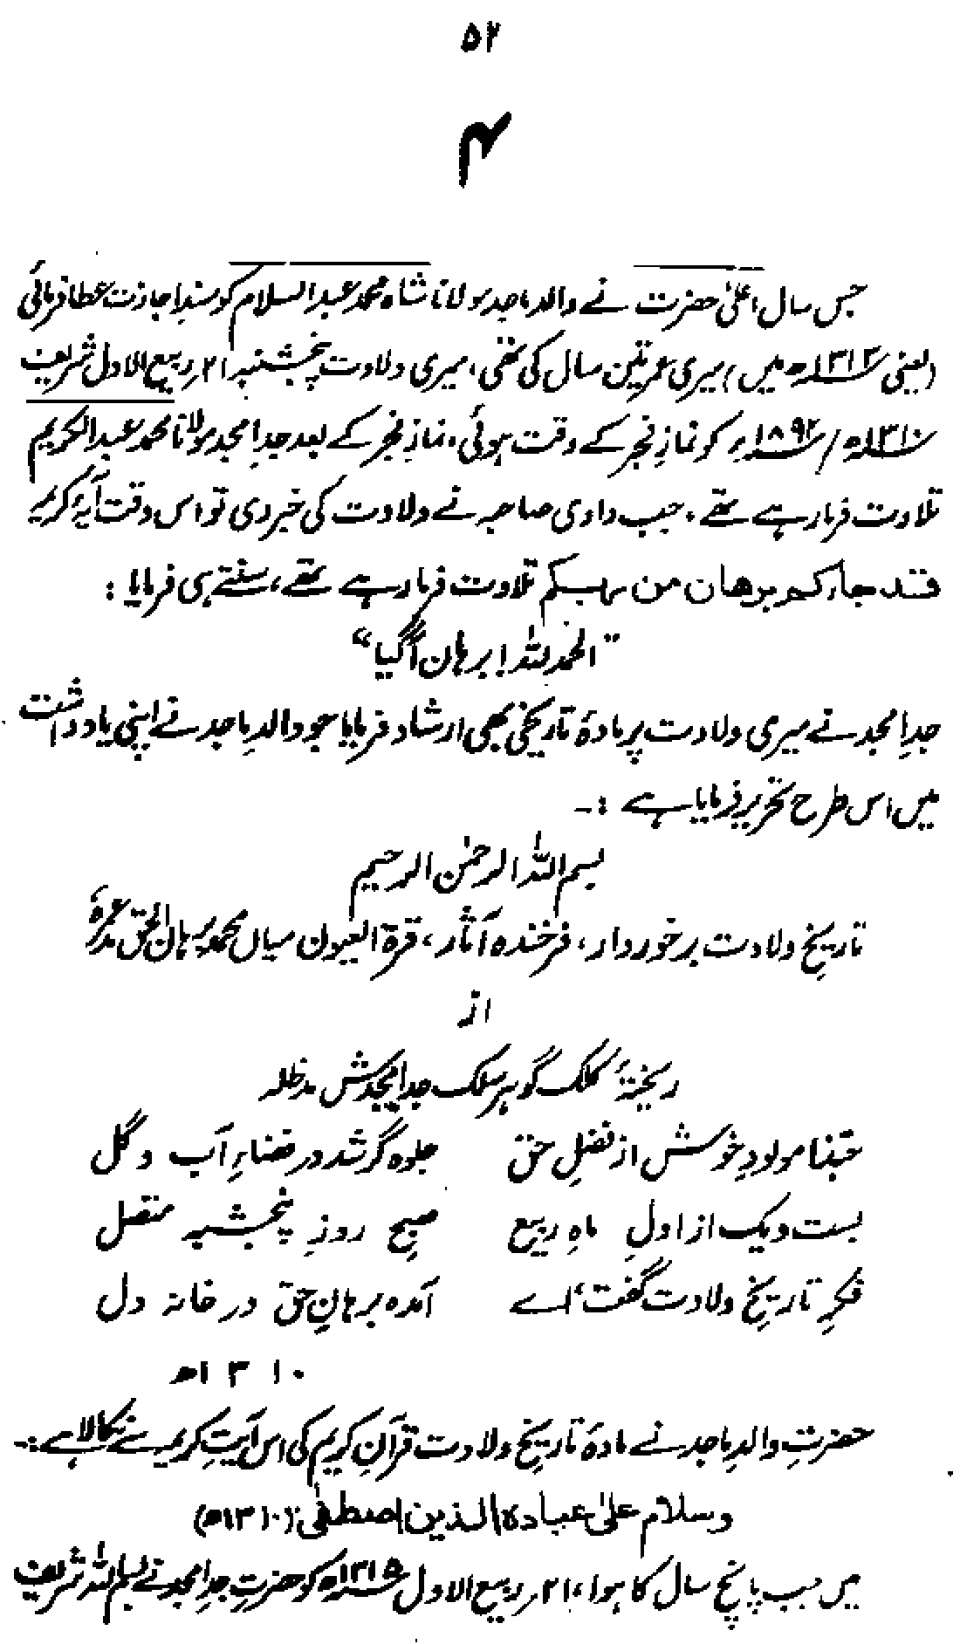 ۵۲
۴
جس سال اعلیٰ حضرت نے والد ماجد مولانا شاہ محمد عبدالسلام کو سندِ اجازت عطا فرمائی
(یعنی ۱۳۱۳ھ میں) میری عمر تین سال کی تھی، میری ولادت پنجشنبہ ۲۱؍ ربیع الاول شریف
۱۳۱۰ھ / ۱۸۹۲ء کو نمازِ فجر کے وقت ہوئی، نمازِ فجر کے بعد جدِ امجد مولانا محمد عبدالکریم
تلاوت فرما رہے تھے، جب دادی صاحبہ نے ولادت کی خبر دی تو اس وقت آیۂ کریمہ
قد جاءکم برھان من ربکم تلاوت فرما رہے تھے، سنتے ہی فرمایا :
"الحمد للہ! برہان آگیا"
جدِ امجد نے میری ولادت پر مادۂ تاریخی بھی ارشاد فرمایا جو والدِ ماجد نے اپنی یادداشت
میں اس طرح تحریر فرمایا ہے :۔
بسم اللہ الرحمٰن الرحیم
تاریخِ ولادت برخوردار، فرخندہ آثار، قرۃ العیون میاں محمد برہان الحق مد عمرہٗ
از
ریختۂ کلک گوہر سلک جد امجدش مدظلہ
حبّذا مولودِ خوش از فضلِ حق جلوہ گر شد در فضاءِ آب و گل
بست و یک از اولِ ماہِ ربیع صبحِ روزِ پنجشبہ متصل
فکرِ تاریخِ ولادت گفت، اے آمدہ برہانِ حق در خانہ دل
۱۳۱۰ھ
حضرتِ والدِ ماجد نے مادۂ تاریخِ ولادت قرآنِ کریم کی اس آیتِ کریمہ سے نکالا ہے :۔
وسلام علیٰ عبادہ الذین اصطفیٰ (۱۳۱۰ھ)
میں جب پانچ سال کا ہوا، ۲۱؍ ربیع الاول ۱۳۱۵ھ کو حضرتِ جدِ امجد نے بسم اللہ شریف